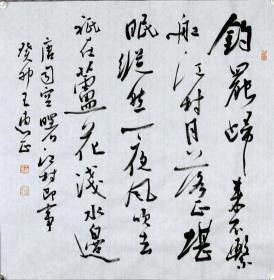 釣罷歸来不繫
船江村月落正堪
眠縱然一夜風吹去
祇在蘆花淺水邊
唐司空曙江村即事
癸卯王正